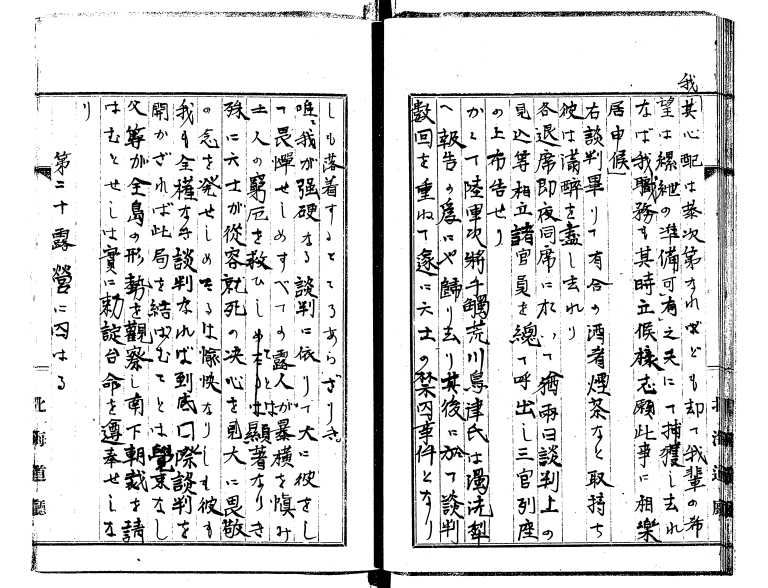 我其心配は茶次第なればども却て我輩の希
望は縲紲の準備可有之夫にて捕獲し去れ
なば我職務も其時立候様志願此事に相楽
居申候」
右談判畢りて有合の酒肴煙茶など取持ち
彼は満酔を盡し去れり
各退席即夜同席に於いて猶両日談判上の
見込等相立諸官員を總て呼出し三官列座
の上布告せり
かくて陸軍次将千 荒川島津氏は 洗
へ報告の為にや歸り去り其後に於て談判
數回を重ねて遂に六士の禁囚事件となり
しも落着するところあらざりき
唯我が強硬なる談判に依りて大に彼をし
て畏憚せしめすべての露人が暴横を慎み
土人の窮厄を救ひしめたることは顯著なりき
殊に六士が從容就死の决心を見大に畏敬
の念を発せしめたるは愉快なりしも彼も
我も全權なき談判なれば到底口際談判を
開かざれば此局を結ばむことは覺束なし
父等が全島の形勢を觀察し南下朝裁を請
はむとせしは實に勅諚台命を遵奉せしな
り
第二十 露營に囚はる
北海道廳
北海道廳